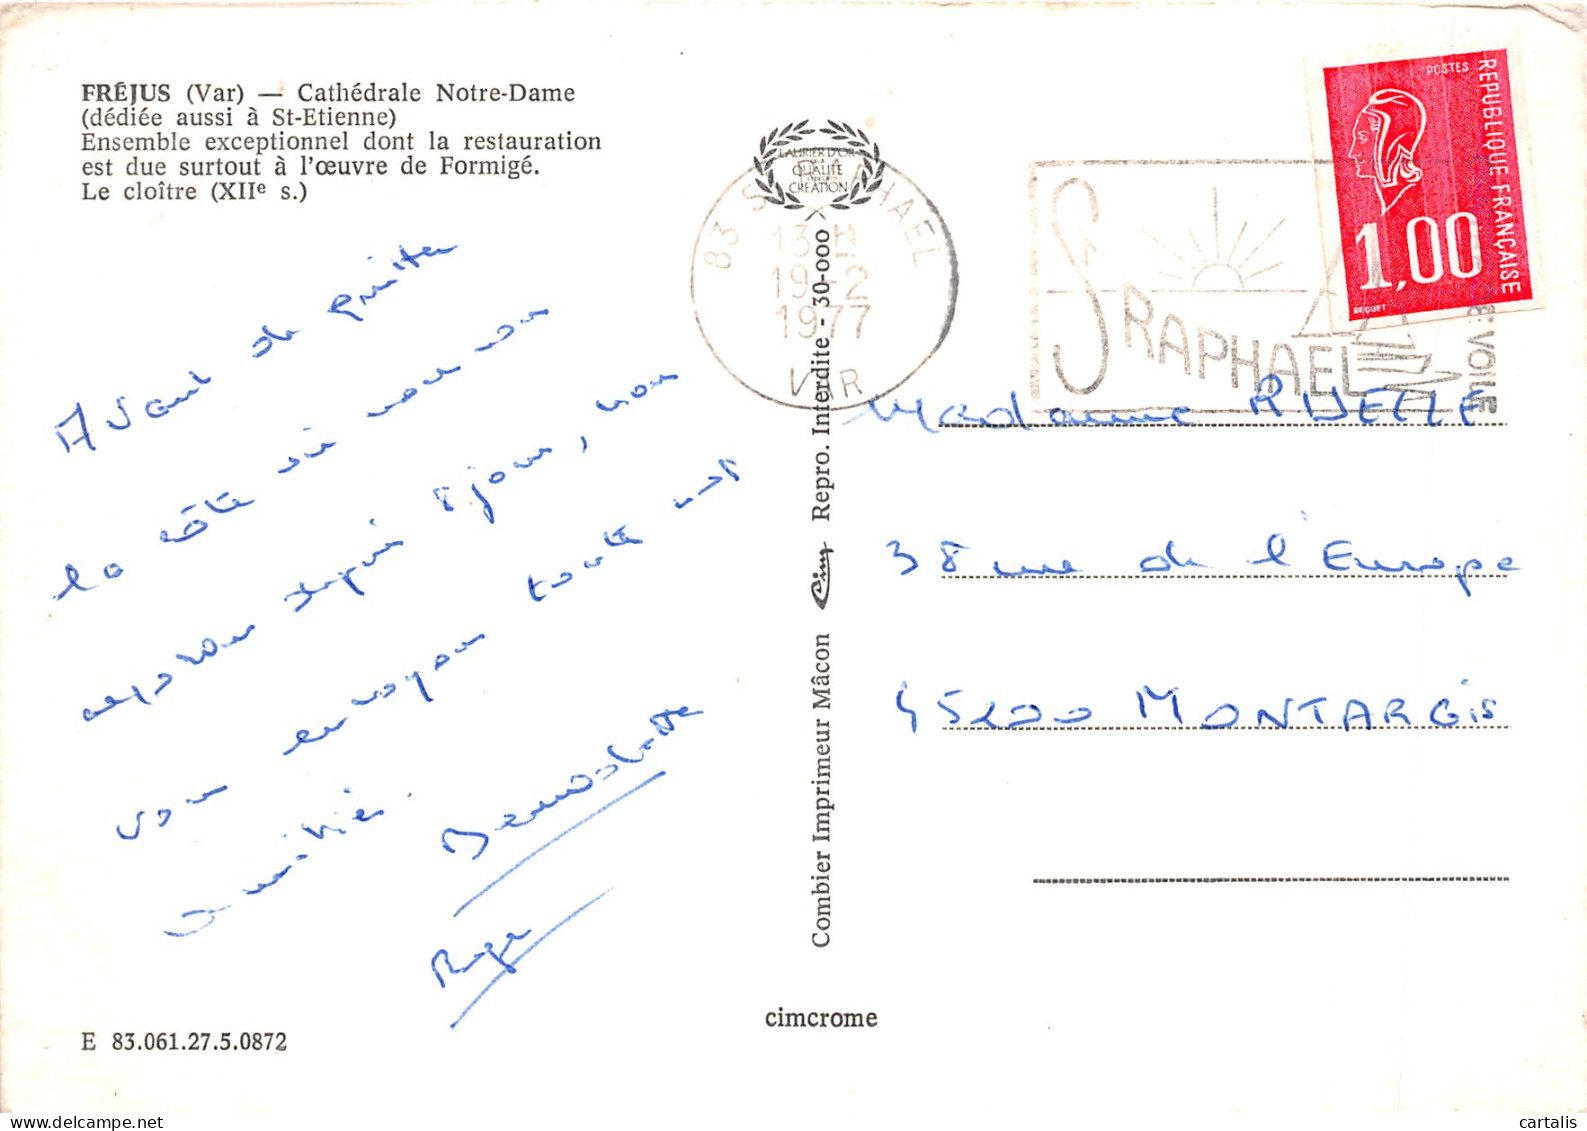 FRÉJUS (Var) — Cathédrale Notre-Dame
(dédiée aussi à St-Etienne)
Ensemble exceptionnel dont la restauration
est due surtout à l'œuvre de Formigé.
Le cloître (XIIe s.)
Avant de quitter
la côte où nous nous
reposons depuis 8 jours, nous
vous envoyons toutes nos
amitiés.
Bernadette
Roger
E 83.061.27.5.0872
LAURIER D'OR
DE LA
QUALITÉ
DE LA
CRÉATION
83 ST RAPHAEL
13 H
19-2
1977
VAR
Combier Imprimeur Mâcon Cim Repro. Interdite - 30-000
cimcrome
ST RAPHAEL
DE VOILE
POSTES
REPUBLIQUE FRANÇAISE
1,00
BEQUET
Madame RUELLE
38 rue de l'Europe
45200 MONTARGIS
cartalis